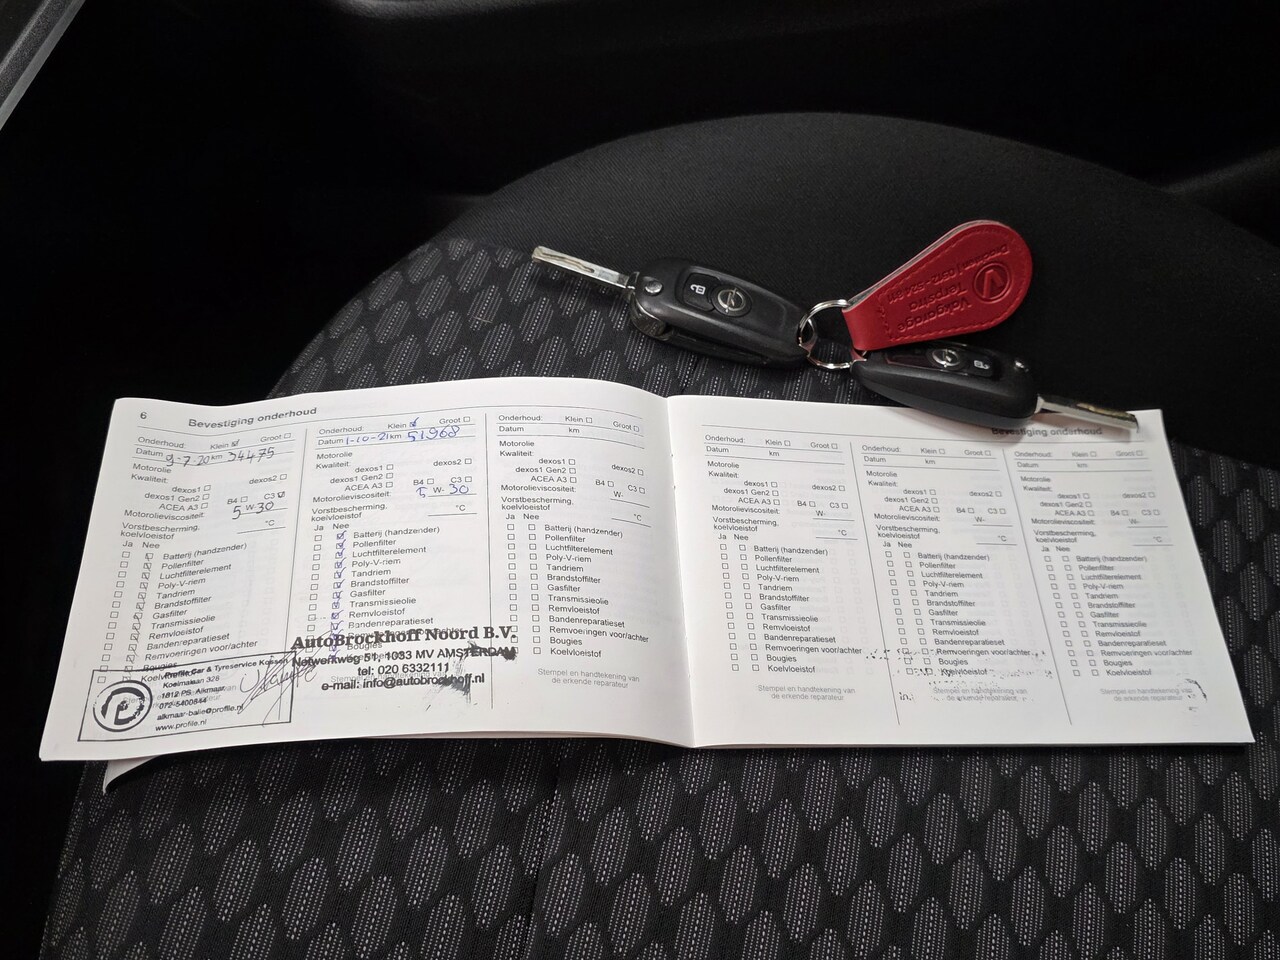 6 Bevestiging onderhoud
Onderhoud: Klein Groot
Datum 9-7-20 km 34475
Motorolie
Kwaliteit:
dexos1 dexos2
dexos1 Gen2
ACEA A3 B4 C3
Motorolieviscositeit: 5 W- 30
Vorstbescherming, koelvloeistof °C
Ja Nee
Batterij (handzender)
Pollenfilter
Luchtfilterelement
Poly-V-riem
Tandriem
Brandstoffilter
Gasfilter
Transmissieolie
Remvloeistof
Bandenreparatieset
Remvoeringen voor/achter
Bougies
Koelvloeistof
Profile Car & Tyreservice Kossen
Koelmalaan 328
1812 PS Alkmaar
072-5400844
alkmaar-balie@profile.nl
www.profile.nl
Onderhoud: Klein Groot
Datum 1-10-21 km 51.968
Motorolie
Kwaliteit:
dexos1 dexos2
dexos1 Gen2
ACEA A3 B4 C3
Motorolieviscositeit: 5 W- 30
Vorstbescherming, koelvloeistof °C
Ja Nee
Batterij (handzender)
Pollenfilter
Luchtfilterelement
Poly-V-riem
Tandriem
Brandstoffilter
Gasfilter
Transmissieolie
Remvloeistof
Bandenreparatieset
Bougies
AutoBrockhoff Noord B.V.
Notwerkweg 51, 1033 MV AMSTERDAM
tel: 020 6332111
e-mail: info@autobrockhoff.nl
Onderhoud: Klein Groot
Datum km
Motorolie
Kwaliteit:
dexos1 dexos2
dexos1 Gen2
ACEA A3 B4 C3
Motorolieviscositeit: W-
Vorstbescherming, koelvloeistof °C
Ja Nee
Batterij (handzender)
Pollenfilter
Luchtfilterelement
Poly-V-riem
Tandriem
Brandstoffilter
Gasfilter
Transmissieolie
Remvloeistof
Bandenreparatieset
Remvoeringen voor/achter
Bougies
Koelvloeistof
Stempel en handtekening van
de erkende reparateur
Bevestiging onderhoud
Onderhoud: Klein Groot
Datum km
Motorolie
Kwaliteit:
dexos1 dexos2
dexos1 Gen2
ACEA A3 B4 C3
Motorolieviscositeit: W-
Vorstbescherming, koelvloeistof °C
Ja Nee
Batterij (handzender)
Pollenfilter
Luchtfilterelement
Poly-V-riem
Tandriem
Brandstoffilter
Gasfilter
Transmissieolie
Remvloeistof
Bandenreparatieset
Remvoeringen voor/achter
Bougies
Koelvloeistof
Stempel en handtekening van
de erkende reparateur
Onderhoud: Klein Groot
Datum km
Motorolie
Kwaliteit:
dexos1 dexos2
dexos1 Gen2
ACEA A3 B4 C3
Motorolieviscositeit: W-
Vorstbescherming, koelvloeistof °C
Ja Nee
Batterij (handzender)
Pollenfilter
Luchtfilterelement
Poly-V-riem
Tandriem
Brandstoffilter
Gasfilter
Transmissieolie
Remvloeistof
Bandenreparatieset
Remvoeringen voor/achter
Bougies
Koelvloeistof
Stempel en handtekening van
de erkende reparateur
Onderhoud: Klein Groot
Datum km
Motorolie
Kwaliteit:
dexos1 dexos2
dexos1 Gen2
ACEA A3 B4 C3
Motorolieviscositeit: W-
Vorstbescherming, koelvloeistof °C
Ja Nee
Batterij (handzender)
Pollenfilter
Luchtfilterelement
Poly-V-riem
Tandriem
Brandstoffilter
Gasfilter
Transmissieolie
Remvloeistof
Bandenreparatieset
Remvoeringen voor/achter
Bougies
Koelvloeistof
Stempel en handtekening van
de erkende reparateur
Vakgarage
Terpstra
Drachten